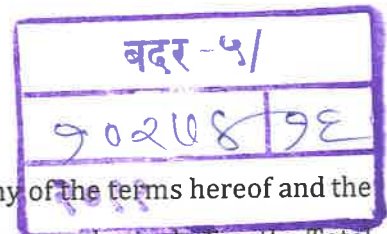 बदर -५/
१०२७४ १६
२०११
ny of the terms hereof and the